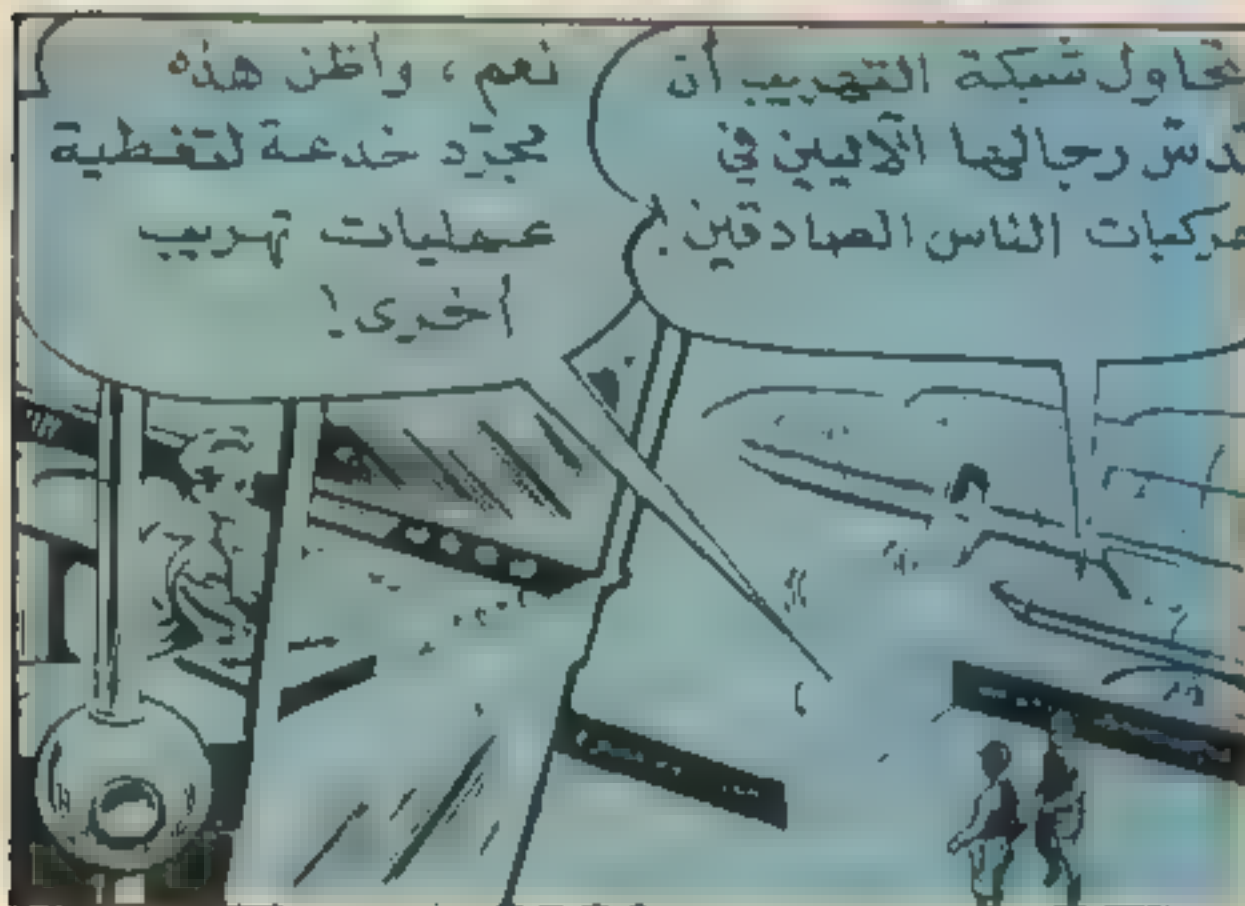 تحاول شبكة التهريب أن
تدسّ رجالها الآليين في
مركبات الناس الصادقين.
نعم، وأظن هذه
مجرّد خدعة لتغطية
عمليات تهريب
أخرى!